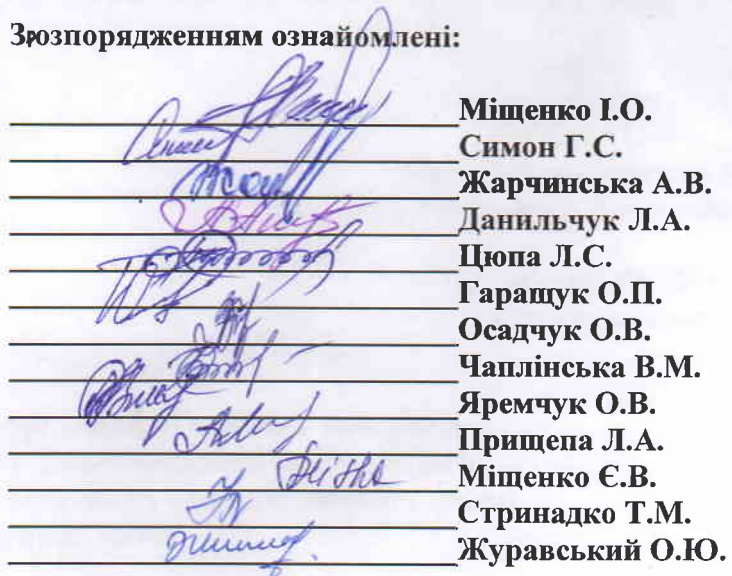 Зрозпорядженням ознайомлені:
Міщенко І.О.
Симон Г.С.
Жарчинська А.В.
Данильчук Л.А.
Цюпа Л.С.
Гаращук О.П.
Осадчук О.В.
Чаплінська В.М.
Яремчук О.В.
Прищепа Л.А.
Міщенко Є.В.
Стринадко Т.М.
Журавський О.Ю.